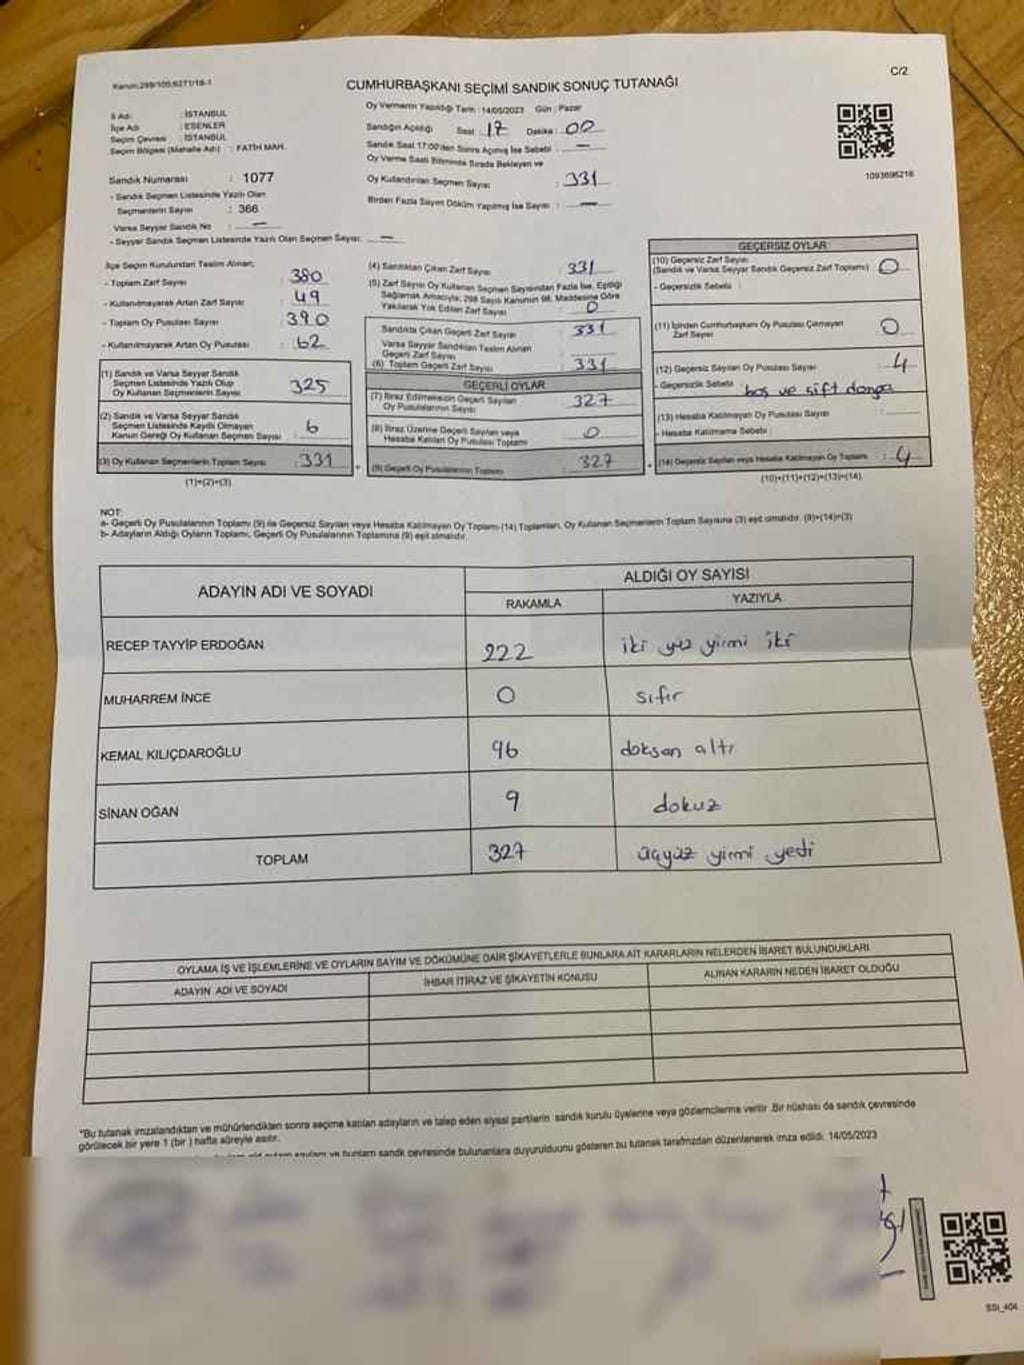 Kanun:298/100;6271/16-1
C/2
CUMHURBAŞKANI SEÇİMİ SANDIK SONUÇ TUTANAĞI
İl Adı : İSTANBUL
İlçe Adı : ESENLER
Seçim Çevresi : İSTANBUL
Seçim Bölgesi (Mahalle Adı) : FATİH MAH.
Sandık Numarası : 1077
- Sandık Seçmen Listesinde Yazılı Olan
Seçmenlerin Sayısı : 366
Varsa Seyyar Sandık No : —
- Seyyar Sandık Seçmen Listesinde Yazılı Olan Seçmen Sayısı: —
Oy Vermenin Yapıldığı Tarih : 14/05/2023 Gün : Pazar
Sandığın Açıldığı Saat : 17 Dakika : 00
Sandık Saat 17:00'den Sonra Açılmış İse Sebebi : —
Oy Verme Saati Bitiminde Sırada Bekleyen ve
Oy Kullandırılan Seçmen Sayısı : 331
Birden Fazla Sayım Döküm Yapılmış İse Sayısı : —
1093696216
İlçe Seçim Kurulundan Teslim Alınan;
- Toplam Zarf Sayısı : 380
- Kullanılmayarak Artan Zarf Sayısı : 49
- Toplam Oy Pusulası Sayısı : 390
- Kullanılmayarak Artan Oy Pusulası : 62
(1) Sandık ve Varsa Seyyar Sandık
Seçmen Listesinde Yazılı Olup
Oy Kullanan Seçmenlerin Sayısı : 325
(2) Sandık ve Varsa Seyyar Sandık
Seçmen Listesinde Kayıtlı Olmayan
Kanun Gereği Oy Kullanan Seçmen Sayısı : 6
(3) Oy Kullanan Seçmenlerin Toplam Sayısı : 331
(1)+(2)=(3)
(4) Sandıktan Çıkan Zarf Sayısı : 331
(5) Zarf Sayısı Oy Kullanan Seçmen Sayısından Fazla İse, Eşitliği
Sağlamak Amacıyla, 298 Sayılı Kanunun 98. Maddesine Göre
Yakılarak Yok Edilen Zarf Sayısı : 0
Sandıkta Çıkan Geçerli Zarf Sayısı : 331
Varsa Seyyar Sandıktan Teslim Alınan
Geçerli Zarf Sayısı :
(6) Toplam Geçerli Zarf Sayısı : 331
GEÇERLİ OYLAR
(7) İtiraz Edilmeksizin Geçerli Sayılan
Oy Pusulalarının Sayısı : 327
(8) İtiraz Üzerine Geçerli Sayılan veya
Hesaba Katılan Oy Pusulası Toplamı : 0
(9) Geçerli Oy Pusulalarının Toplamı : 327
GEÇERSİZ OYLAR
(10) Geçersiz Zarf Sayısı
(Sandık ve Varsa Seyyar Sandık Geçersiz Zarf Toplamı) : 0
- Geçersizlik Sebebi :
(11) İçinden Cumhurbaşkanı Oy Pusulası Çıkmayan
Zarf Sayısı : 0
(12) Geçersiz Sayılan Oy Pusulası Sayısı : 4
- Geçersizlik Sebebi : boş ve çift damga
(13) Hesaba Katılmayan Oy Pusulası Sayısı :
- Hesaba Katılmama Sebebi :
(14) Geçersiz Sayılan veya Hesaba Katılmayan Oy Toplamı : 4
(10)+(11)+(12)+(13)=(14)
NOT:
a- Geçerli Oy Pusulalarının Toplamı (9) ile Geçersiz Sayılan veya Hesaba Katılmayan Oy Toplamı (14) Toplamları, Oy Kullanan Seçmenlerin Toplam Sayısına (3) eşit olmalıdır. (9)+(14)=(3)
b- Adayların Aldığı Oyların Toplamı, Geçerli Oy Pusulalarının Toplamına (9) eşit olmalıdır.
ADAYIN ADI VE SOYADI
ALDIĞI OY SAYISI
RAKAMLA YAZIYLA
RECEP TAYYİP ERDOĞAN 222 iki yüz yirmi iki
MUHARREM İNCE 0 sıfır
KEMAL KILIÇDAROĞLU 96 doksan altı
SİNAN OĞAN 9 dokuz
TOPLAM 327 üçyüz yirmi yedi
OYLAMA İŞ VE İŞLEMLERİNE VE OYLARIN SAYIM VE DÖKÜMÜNE DAİR ŞİKAYETLERLE BUNLARA AİT KARARLARIN NELERDEN İBARET BULUNDUKLARI
ADAYIN ADI VE SOYADI İHBAR İTİRAZ VE ŞİKAYETİN KONUSU ALINAN KARARIN NEDEN İBARET OLDUĞU
*Bu tutanak imzalandıktan ve mühürlendikten sonra seçime katılan adayların ve talep eden siyasi partilerin sandık kurulu üyelerine veya gözlemcilerine verilir .Bir nüshası da sandık çevresinde
görülecek bir yere 1 (bir ) hafta süreyle asılır.
ve bunların sandık çevresinde bulunanlara duyurulduunu gösteren bu tutanak tarafımızdan düzenlenerek imza edildi. 14/05/2023
SSİ_404